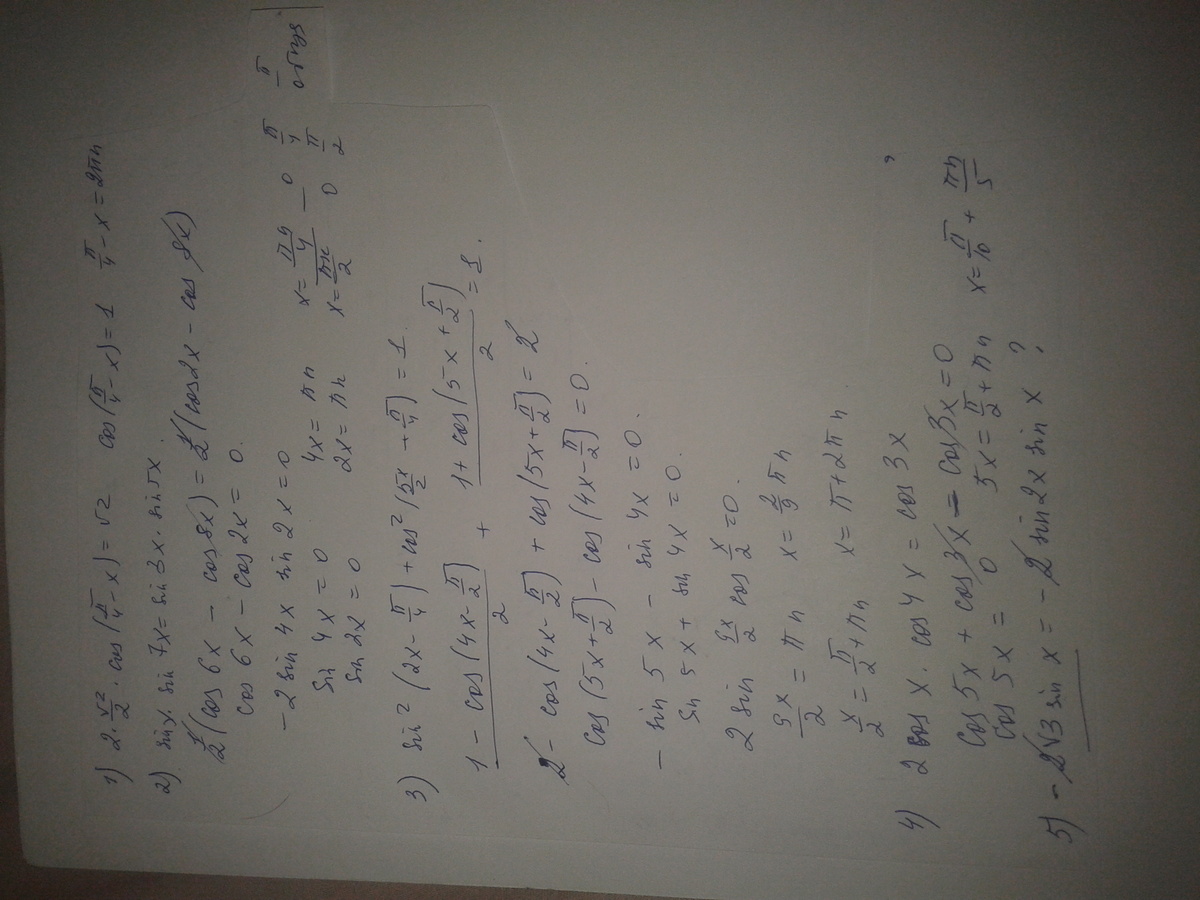 1) 2·√2/2·cos(π/4-x)=√2 cos(π/4-x)=1 π/4-x=2πn
2) sin x·sin 7x=sin 3x·sin 5x
1/2(cos 6x-cos 8x)=1/2(cos 2x-cos 8x)
cos 6x-cos 2x=0.
-2 sin 4x sin 2x=0
sin 4x=0 4x=πn x=πn/4 — 0 π/4
sin 2x=0 2x=πn x=πn/2 0 π/2
3) sin²(2x-π/4)+cos²(5x/2+π/4)=1
(1-cos(4x-π/2))/2 + (1+cos(5x+π/2))/2=1.
2-cos(4x-π/2)+cos(5x+π/2)=2
cos(5x+π/2)-cos(4x-π/2)=0.
-sin 5x-sin 4x=0.
sin 5x+sin 4x=0.
2 sin 9x/2 cos x/2=0.
9x/2=πn x=2/9 πn
x/2=π/2+πn x=π+2πn
4) 2 cos x·cos 4x=cos 3x
cos 5x+cos 3x-cos 3x=0
cos 5x=0 5x=π/2+πn x=π/10+πn/5
5) -2√3 sin x=-2 sin 2x sin x ?